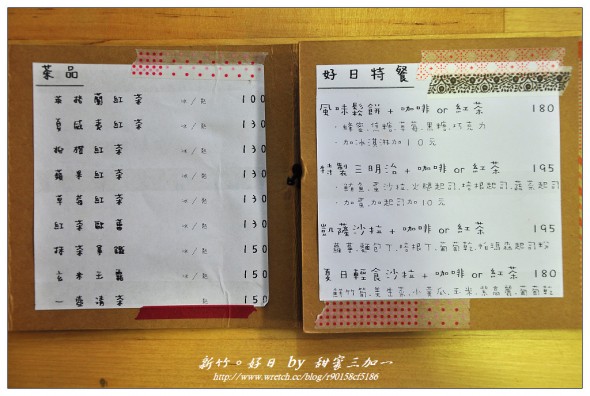 茶品
英格蘭紅茶 冰/熱 100
夏威夷紅茶 冰/熱 130
柳橙紅茶 冰/熱 130
蘋果紅茶 冰/熱 130
草莓紅茶 冰/熱 130
紅茶歐蕾 冰/熱 130
抹茶拿鐵 冰/熱 150
玄米玉露 冰/熱 150
一壺清茶 熱 150
好日特餐
風味鬆餅 + 咖啡 or 紅茶 180
· 蜂蜜.焦糖.草莓.黑糖.巧克力
· 加冰淇淋加10元
特製三明治 + 咖啡 or 紅茶 195
· 鮪魚蛋沙拉.火腿起司.培根起司.蔬菜起司
· 加蛋.加起司加10元
凱薩沙拉 + 咖啡 or 紅茶 195
蘿蔓.麵包丁.培根丁.葡萄乾.帕瑪森起司粉
夏日輕食沙拉 + 咖啡 or 紅茶 180
鮮竹筍.美生菜.小黃瓜.玉米.紫高麗.葡萄乾
新竹。好日 by 甜蜜三加一
http://www.wretch.cc/blog/r90158cf5186